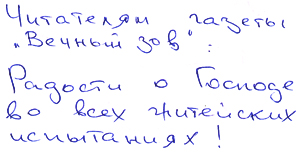 Читателям газеты
„Вечный зов":
Радости о Господе
во всех житейских
испытаниях!